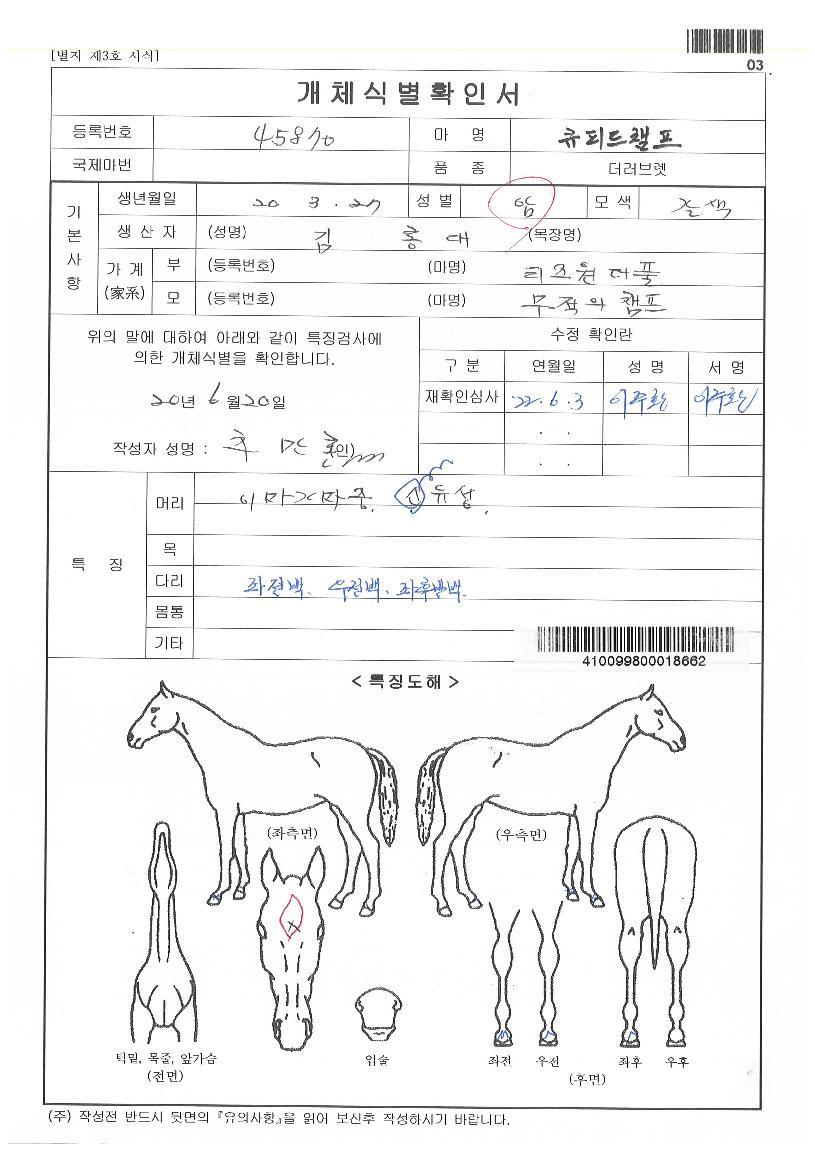 [별지 제3호 서식]
03
개체식별확인서
등록번호 45870 마 명 큐피드캠프
국제마번 품 종 더러브렛
기본사항
생년월일 20 3 . 27 성별 암 모색 갈색
생산자 (성명) 김 홍 대 (목장명)
가계 (家系) 부 (등록번호) (마명) 티즈원더풀
모 (등록번호) (마명) 무적의캠프
위의 말에 대하여 아래와 같이 특징검사에
의한 개체식별을 확인합니다.
20년 6월 20일
작성자 성명 : (인)
수정 확인란
구 분 연월일 성 명 서 명
재확인심사 22. 6. 3 이주환 이주환
. .
. .
특 징
머리 이마가마중. 유성.
목
다리 좌전백. 우전백. 좌후반백.
몸통
기타
410099800018662
< 특징도해 >
(좌측면) (우측면)
턱밑, 목줄, 앞가슴 입술 좌전 우전 좌후 우후
(전면) (후면)
(주) 작성전 반드시 뒷면의 『유의사항』을 읽어 보신후 작성하시기 바랍니다.